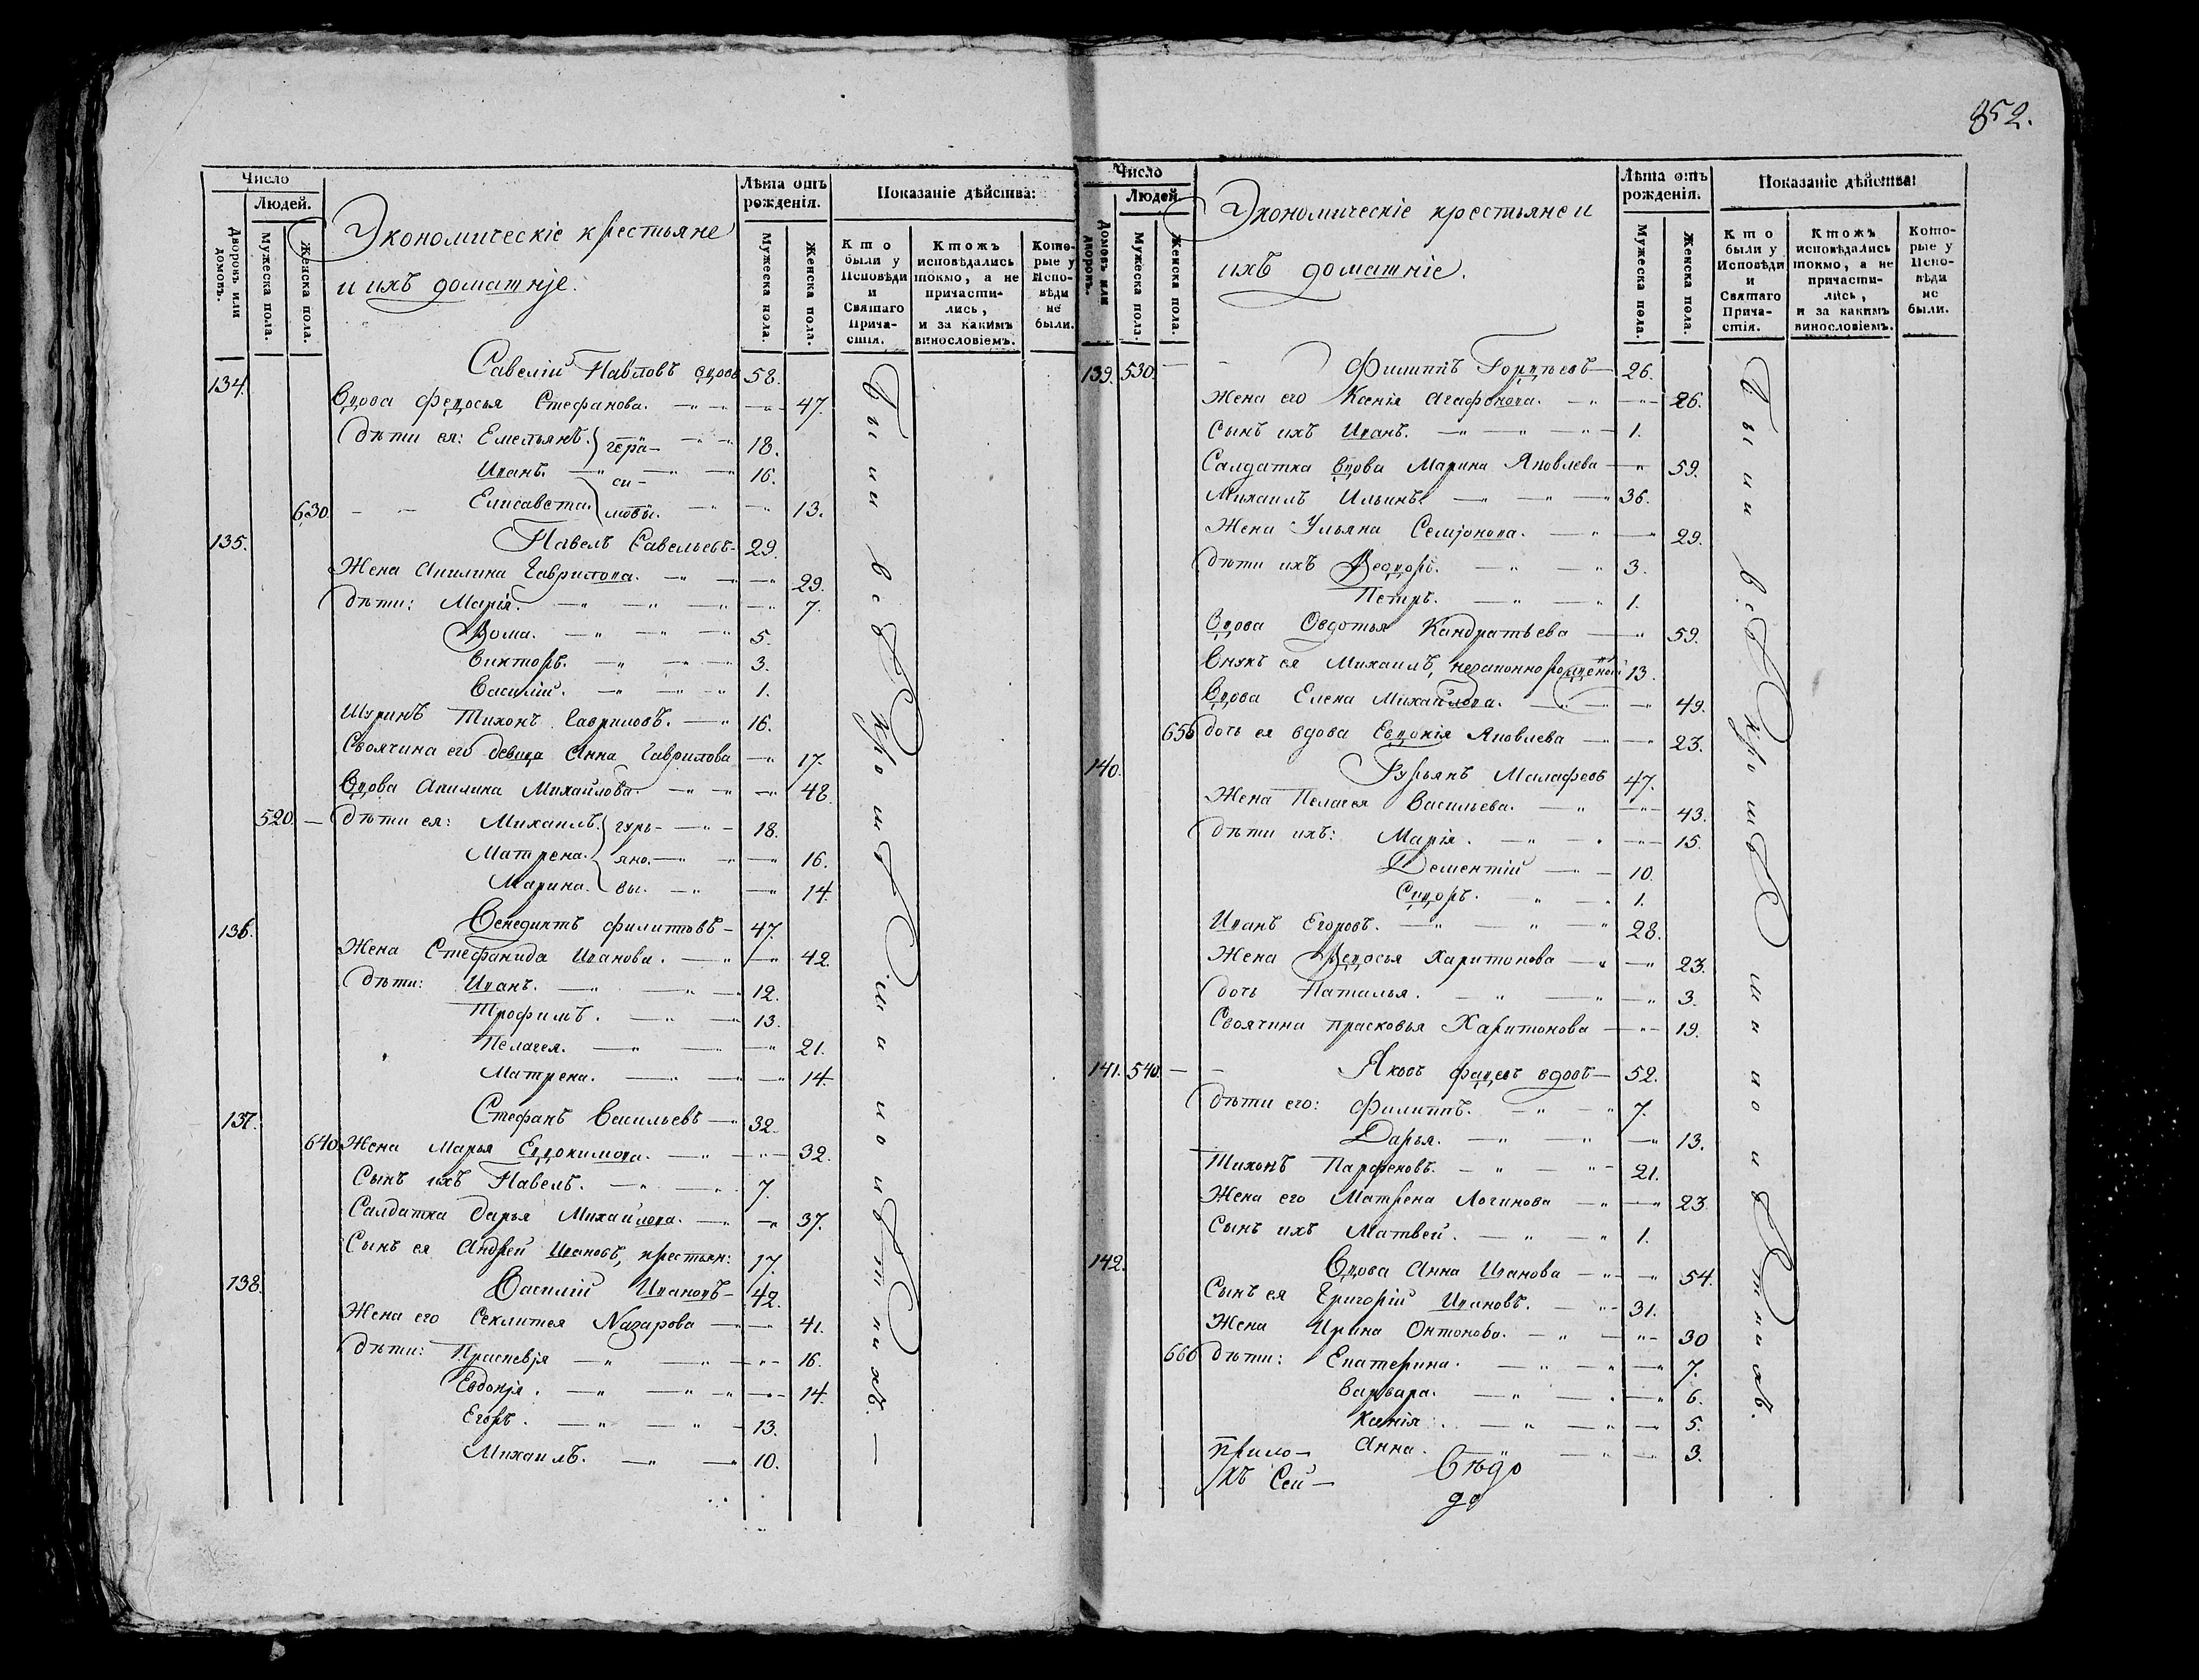 852.
Число
Людей.
Дворовъ или домовъ.
Мужеска пола.
Женска пола.
Экономическіе крестьяне
и ихъ доматніе.
Лѣта отъ рожденія.
Мужеска пола.
Женска пола.
Показаніе дѣйства:
Кто были у Исповѣди и Святаго Причастія.
Ктожъ исповѣдались токмо, а не причастились, и за какимъ винословіемъ.
Которые у Исповѣди не были.
134. Савелій Павловъ вдовъ 58.
Вдова Федосья Стефанова. 47.
дѣти ея: Емельянъ. гера- 18.
Иванъ. си- 16.
630. Елисавета. мовы. 13.
135. Павелъ Савельевъ 29.
Жена Акилина Гаврилова. 29.
дѣти: Марія. 7.
Ѳома. 5.
Викторъ. 3.
Василій. 1.
Шуринъ Тихонъ Гавриловъ. 16.
Своячина его девица Анна Гаврилова 17.
Вдова Акилина Михайлова. 48.
520. дѣти ея: Михаилъ. гурь- 18.
Матрена. яно- 16.
Марина. вы. 14.
136. Венедиктъ Филипповъ 47.
Жена Стефанида Иванова. 42.
дѣти: Иванъ. 12.
Трофимъ. 13.
Пелагея. 21.
Матрена. 14.
137. Стефанъ Васильевъ 32.
640. Жена Марья Евдокимова. 32.
Сынъ ихъ Павелъ. 7.
Салдатка Дарья Михайлова. 37.
Сынъ ея Андрей Ивановъ, крестьян: 17.
138. Василій Ивановъ 42.
Жена его Секлитея Назарова 41.
дѣти: Праскевія 16.
Евдокія. 14.
Егоръ. 13.
Михаилъ. 10.
Были всѣ кромѣ малолѣтнихъ.
Число
Людей.
Домовъ или дворовъ.
Мужеска пола.
Женска пола.
Экономическіе крестьяне и
ихъ доматніе.
Лѣта отъ рожденія.
Мужеска пола.
Женска пола.
Показаніе дѣйства:
Кто были у Исповѣди и Святаго Причастія.
Ктожъ исповѣдались токмо, а не причастились, и за какимъ винословіемъ.
Которые у Исповѣди не были.
139. 530. Филиппъ Гордѣевъ 26.
Жена его Ксенія Агафонова. 26.
Сынъ ихъ Иванъ. 1.
Салдатка вдова Марина Яковлева 59.
Михаилъ Ильинъ 36.
Жена Ульяна Семіонова. 29.
дѣти ихъ Ѳеодоръ. 3.
Петръ. 1.
Вдова Овдотья Кандратьева 59.
Внукъ ея Михаилъ, незаконнорожденой 13.
Вдова Елена Михайлова. 49.
650 дочь ея вдова Евдокія Яковлева 23.
140. Гурьянъ Малафеевъ 47.
Жена Пелагея Васильева. 43.
дѣти ихъ: Марія. 15.
Дементій 10.
Сидоръ. 1.
Иванъ Егоровъ. 28.
Жена Ѳедосья Харитонова 23.
дочь Наталья. 3.
Своячина Прасковья Харитонова 19.
141. 540. Яковъ Фадеевъ вдовъ 52.
дѣти его: Филиппъ. 7.
Дарья. 13.
Тихонъ Парфеновъ. 21.
Жена его Матрена Логинова 23.
Сынъ ихъ Матвей. 1.
142. Вдова Анна Иванова 54.
Сынъ ея Григорій Ивановъ. 31.
Жена Ирина Онтонова. 30
660 дѣти: Екатерина. 7.
Варвара. 6.
Ксенія. 5.
Анна. 3.
Были всѣ кромѣ малолѣтнихъ.